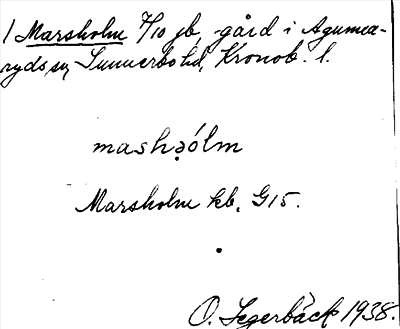 1 Marsholm 7/10 jb, gård i Agunna-
ryds sn, Sunnerbo hd, Kronob. l.
mashə̣ólm
Marsholm kb. G15.
O. Segerbäck 1938.